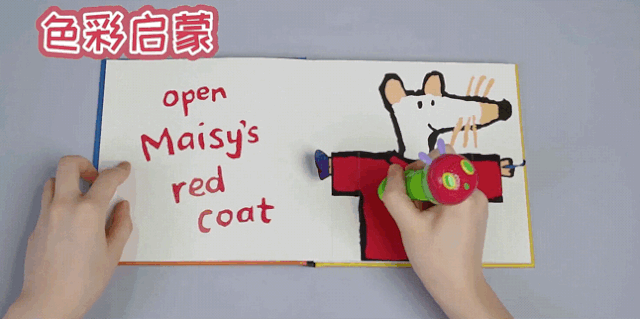 色彩启蒙
open
Maisy's
red
coat